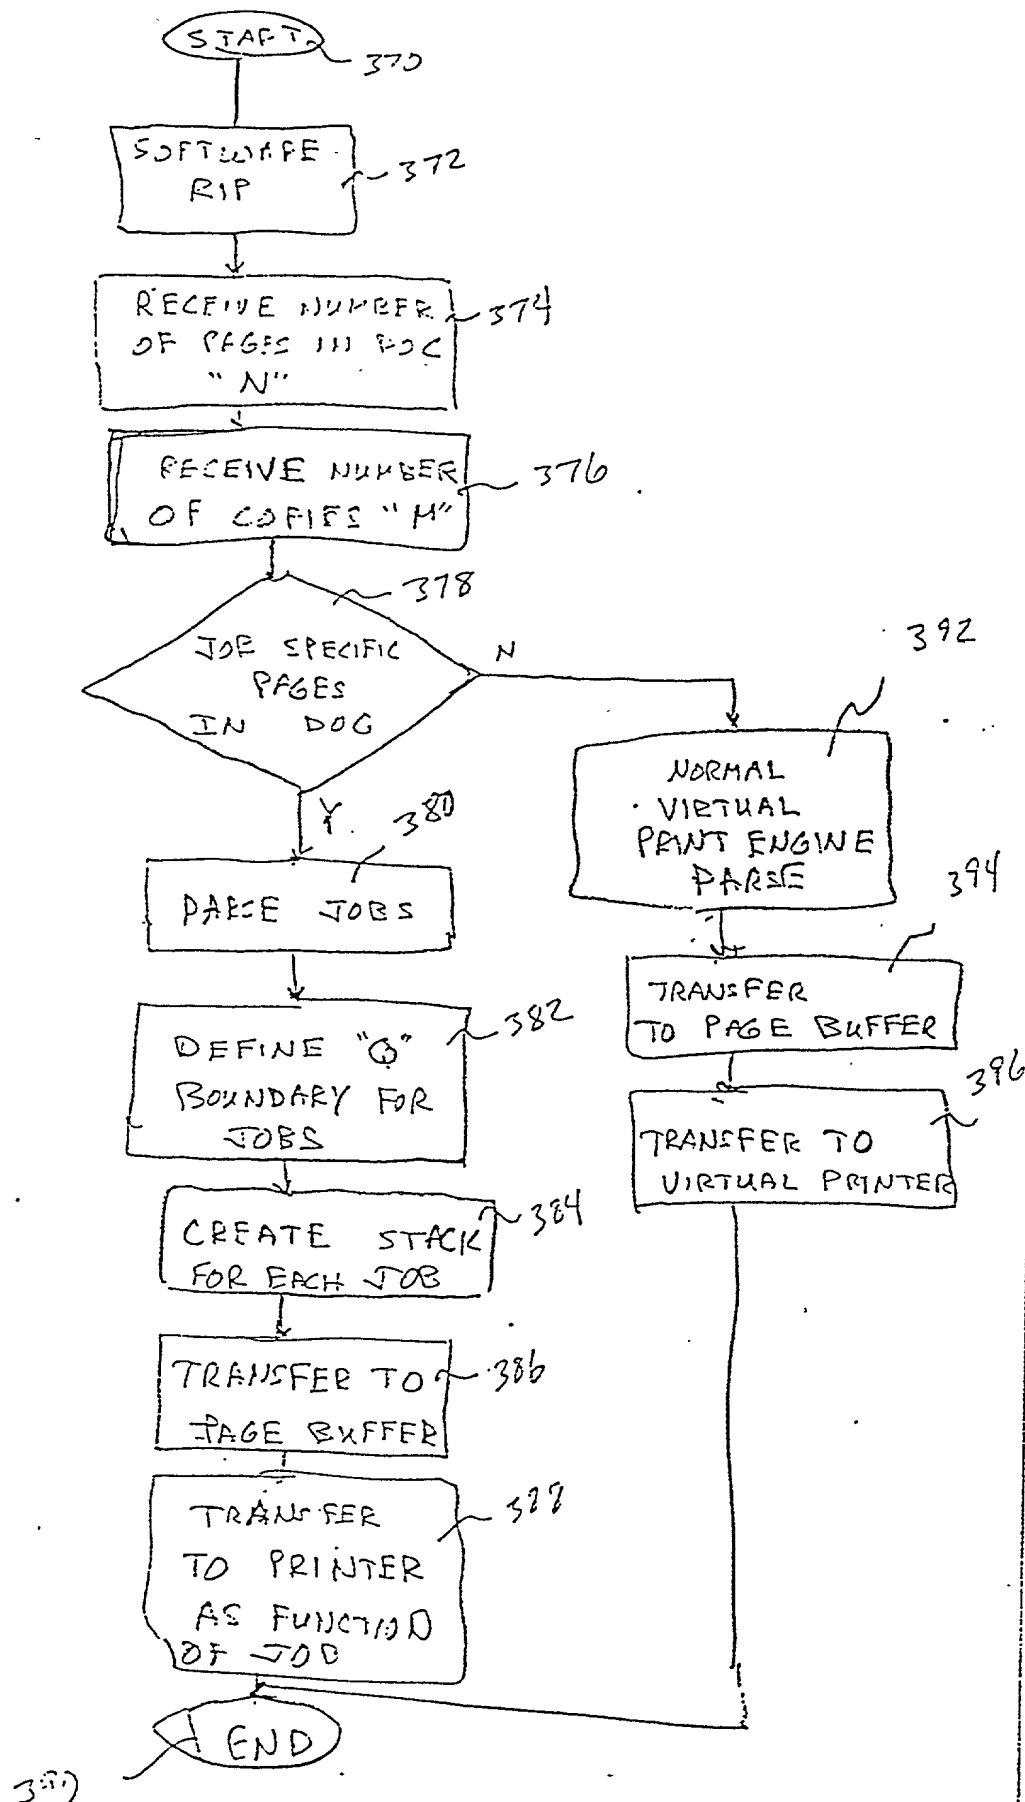 START
370
SOFTWARE
RIP
372
RECEIVE NUMBER
OF PAGES IN DOC
"N"
374
RECEIVE NUMBER
OF COPIES "M"
376
378
JOB SPECIFIC
PAGES
IN DOC
N
Y
380
PARSE JOBS
DEFINE "Q"
BOUNDARY FOR
JOBS
382
CREATE STACK
FOR EACH JOB
384
TRANSFER TO
PAGE BUFFER
386
TRANSFER
TO PRINTER
AS FUNCTION
OF JOB
388
END
392
NORMAL
VIRTUAL
PRINT ENGINE
PARSE
394
TRANSFER
TO PAGE BUFFER
396
TRANSFER TO
VIRTUAL PRINTER